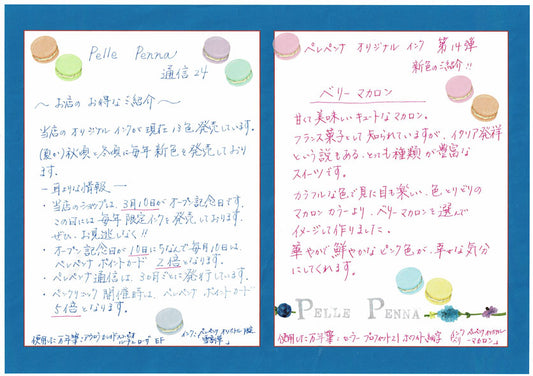 Pelle Penna
通信 24
〜お店の お得な ご紹介〜
当店の オリジナル インクが 現在 13色 発売しています。
秋頃と 冬頃に 毎年 新色を 発売しており
ます。
ー 耳よりな情報 ー
・当店のショップは、3月10日が オープン記念日です。
この日には 毎年 限定インクを 発売しております。
ぜひ、お見逃しなく!!
・オープン記念日が 10日にちなんで 毎月10日は、
ペレペンナ ポイントカード 2倍となります。
・ペレペンナ通信は、3か月ごとに発行しています。
・ペンクリニック 開催時は、ペレペンナ ポイントカード
5倍 となります。
使用した万年筆: EF
インク: ペレペンナ オリジナル
ペレペンナ オリジナル インク 第14弾
新色のご紹介!!
ベリー マカロン
甘くて 美味しい キュートな マカロン。
フランス菓子として 知られていますが、イタリア発祥
という説もある、とても 種類が 豊富な
スイーツです。
カラフルな色で 見た目も楽しい、色とりどりの
マカロン カラーより、ベリー マカロンを 選んで
イメージして作りました。
華やかで 鮮やかな ピンク色が、幸せな気分
にしてくれます。
PELLE PENNA
使用した万年筆: セーラー プロフィット21 細字
インク: ペレペンナ オリジナル
マカロン」